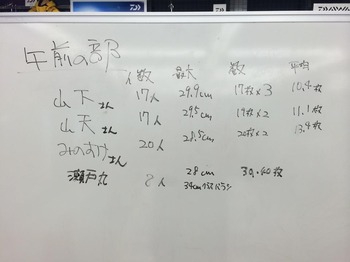 午前の部
人数 最大 数 平均
山下さん 17人 29.9cm 17枚×3 10.4枚
山天さん 17人 29.5cm 19枚×2 11.1枚
みのすけさん 20人 28.5cm 20枚×2 13.4枚
瀬戸丸 2人 28cm 30.40枚
34cm